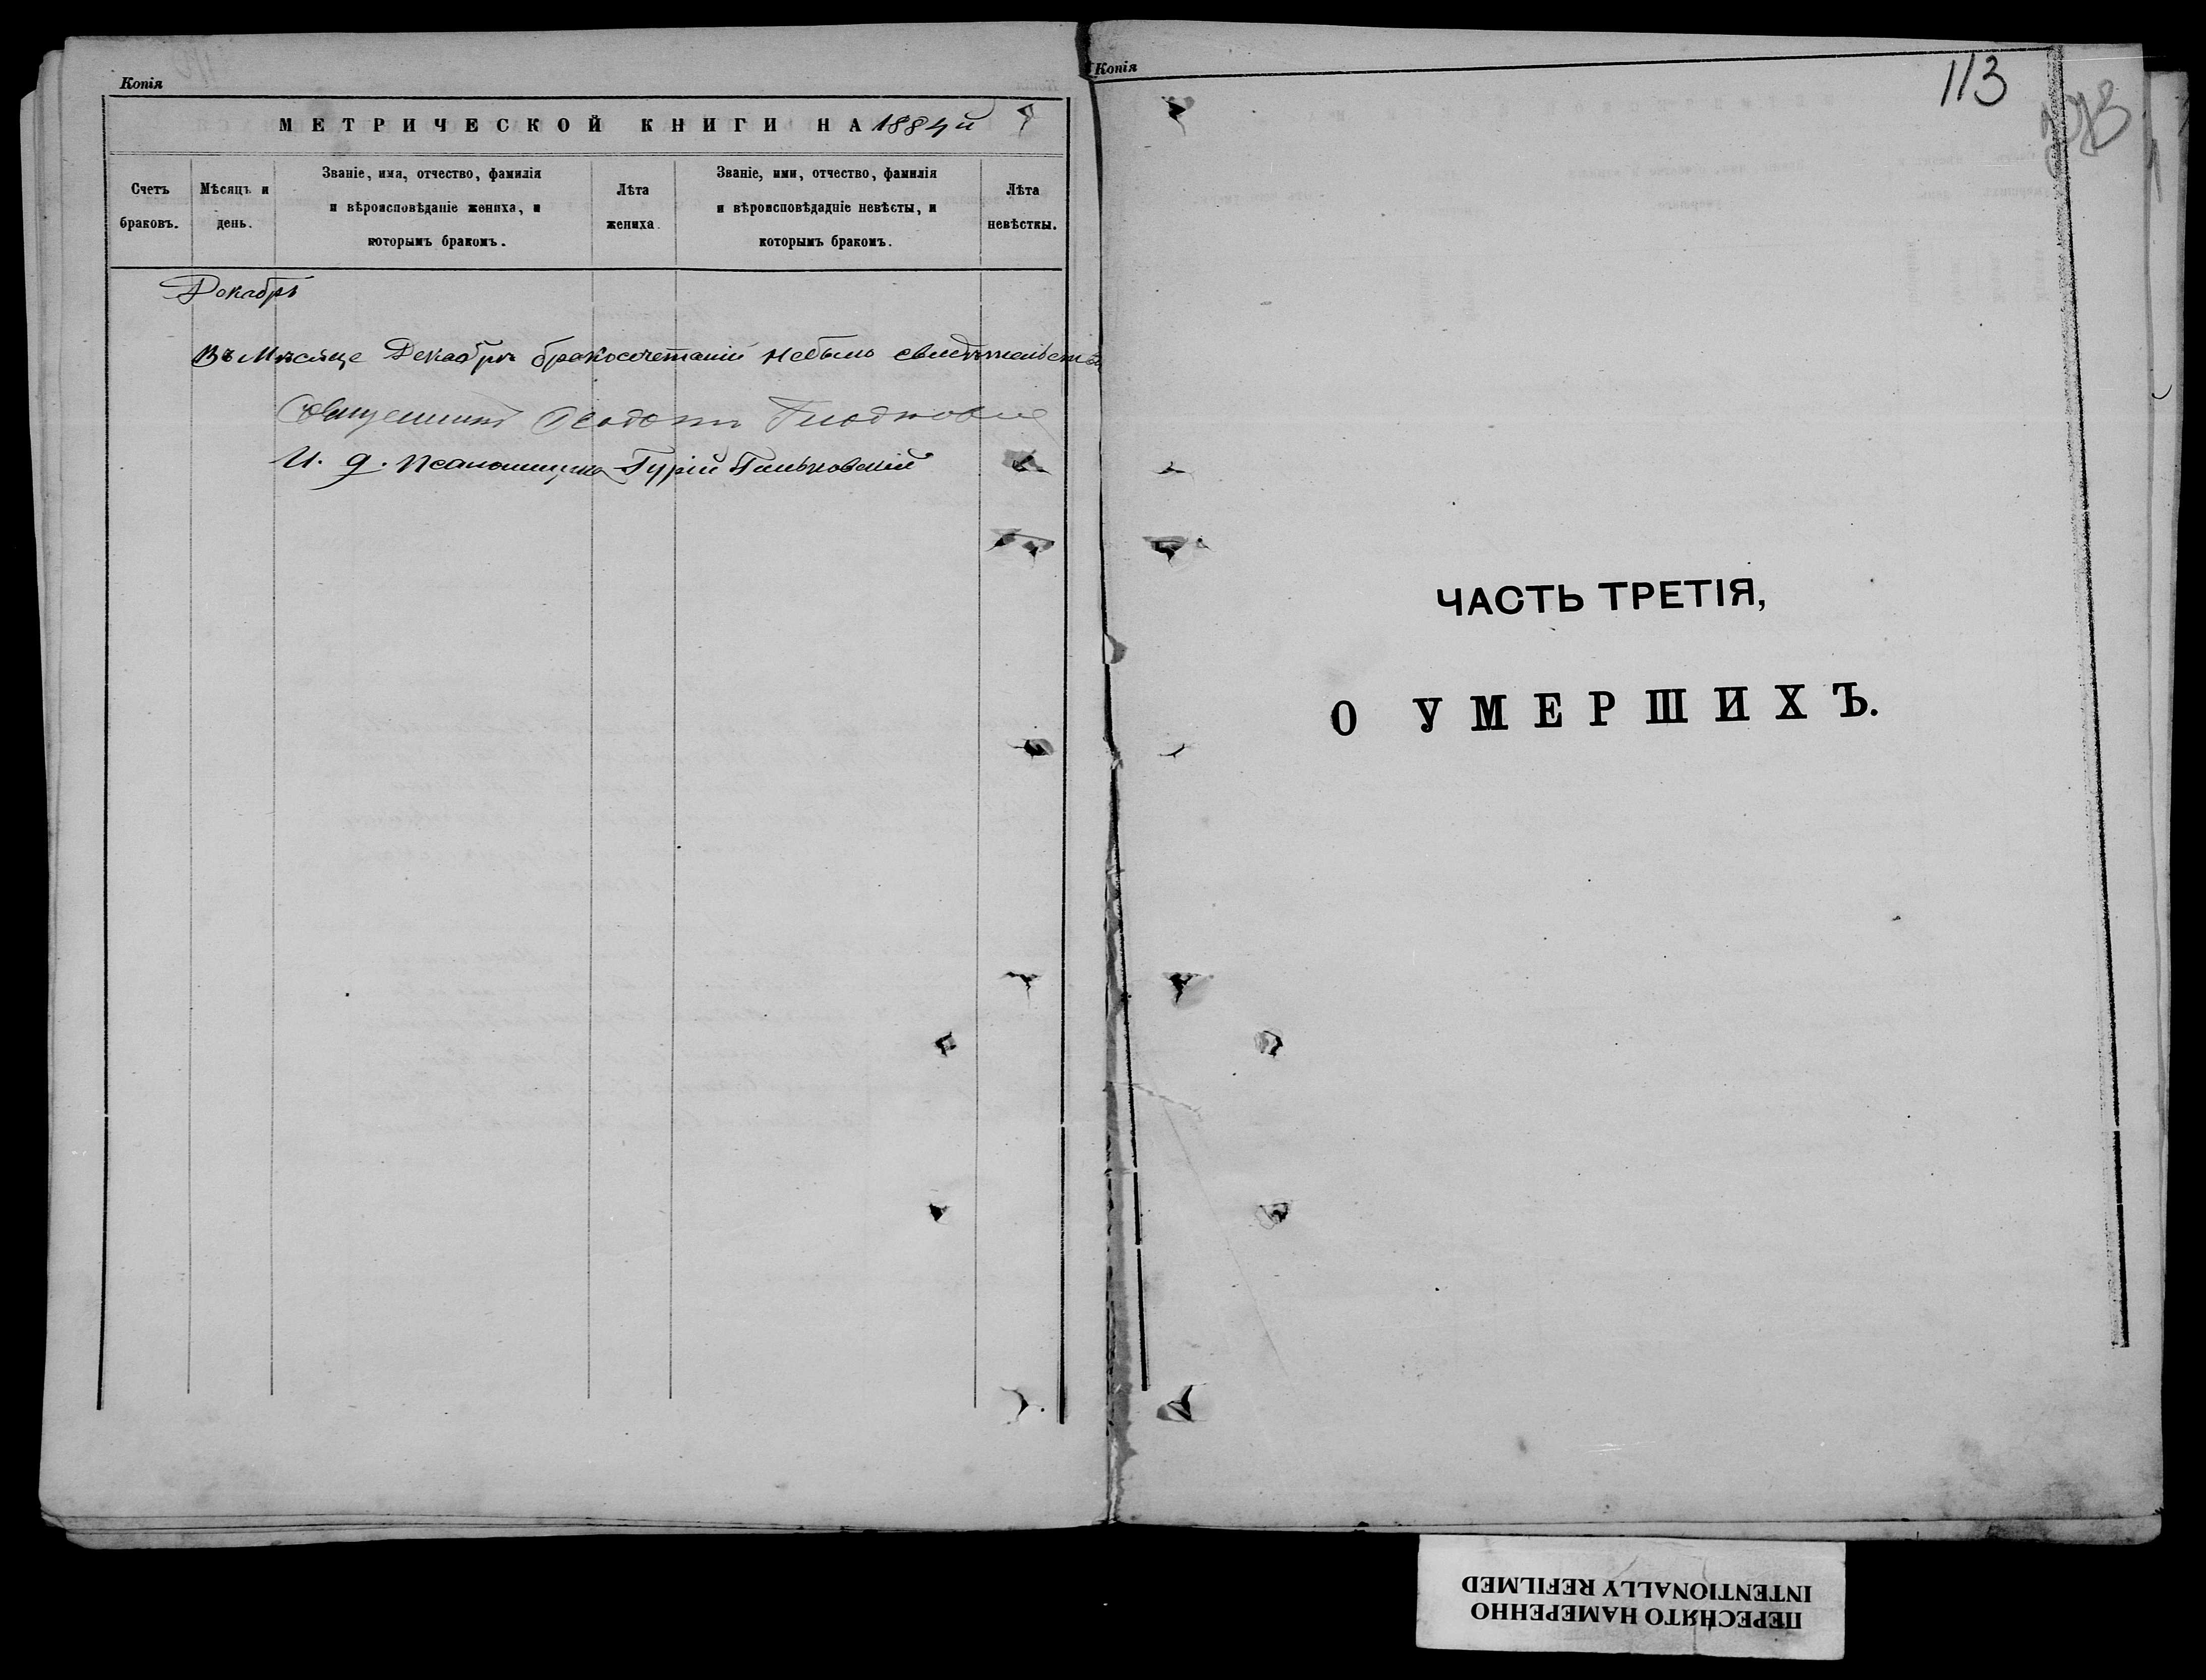 Копія
МЕТРИЧЕСКОЙ КНИГИ НА 1884й
Счетъ браковъ.
Мѣсяцъ и день.
Званіе, имя, отчество, фамилія
и вѣроисповѣданіе жениха, и
которымъ бракомъ.
Лѣта жениха.
Званіе, ими, отчество, фамилія
и вѣроисповѣдадніе невѣсты, и
которымъ бракомъ.
Лѣта невѣсткы.
Декабрь
Въ Мѣсяце Декабрѣ бракосочетаній небыло
Священникъ
И. д. Псаломщика Гурій
Копія
113
ЧАСТЬ ТРЕТІЯ,
О УМЕРШИХЪ.
ПЕРЕСНЯТО НАМЕРЕННО
INTENTIONALLY REFILMED